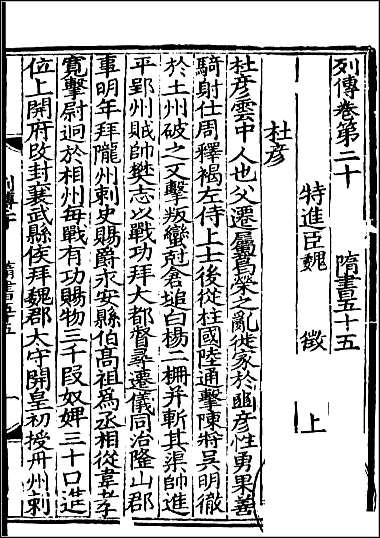 列傳卷第二十　隋書五十五
特進臣魏　徵　上
杜彦
杜彦雲中人也父遷屬葛榮之亂徙家於豳彦性勇果善
騎射仕周釋褐左侍上士後從柱國陸通擊陳將吳明徹
於土州破之又擊叛蠻尅倉塠白楊二柵并斬其渠帥進
平郢州賊帥樊志以戰功拜大都督尋遷儀同治隆山郡
事明年拜隴州刺史賜爵永安縣伯髙祖爲丞相從韋孝
寛擊尉迥於相州每戰有功賜物三千段奴婢三十口進
位上開府改封襄武縣侯拜魏郡太守開皇初授丹州刺